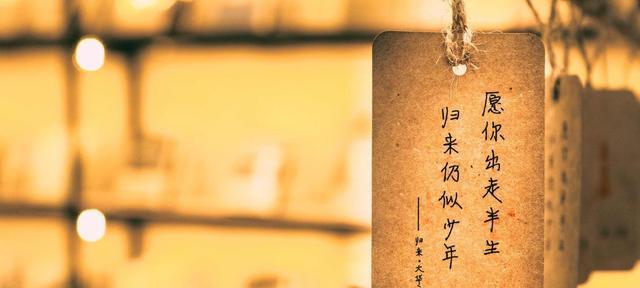 愿你出走半生
归来仍似少年
——归来·大